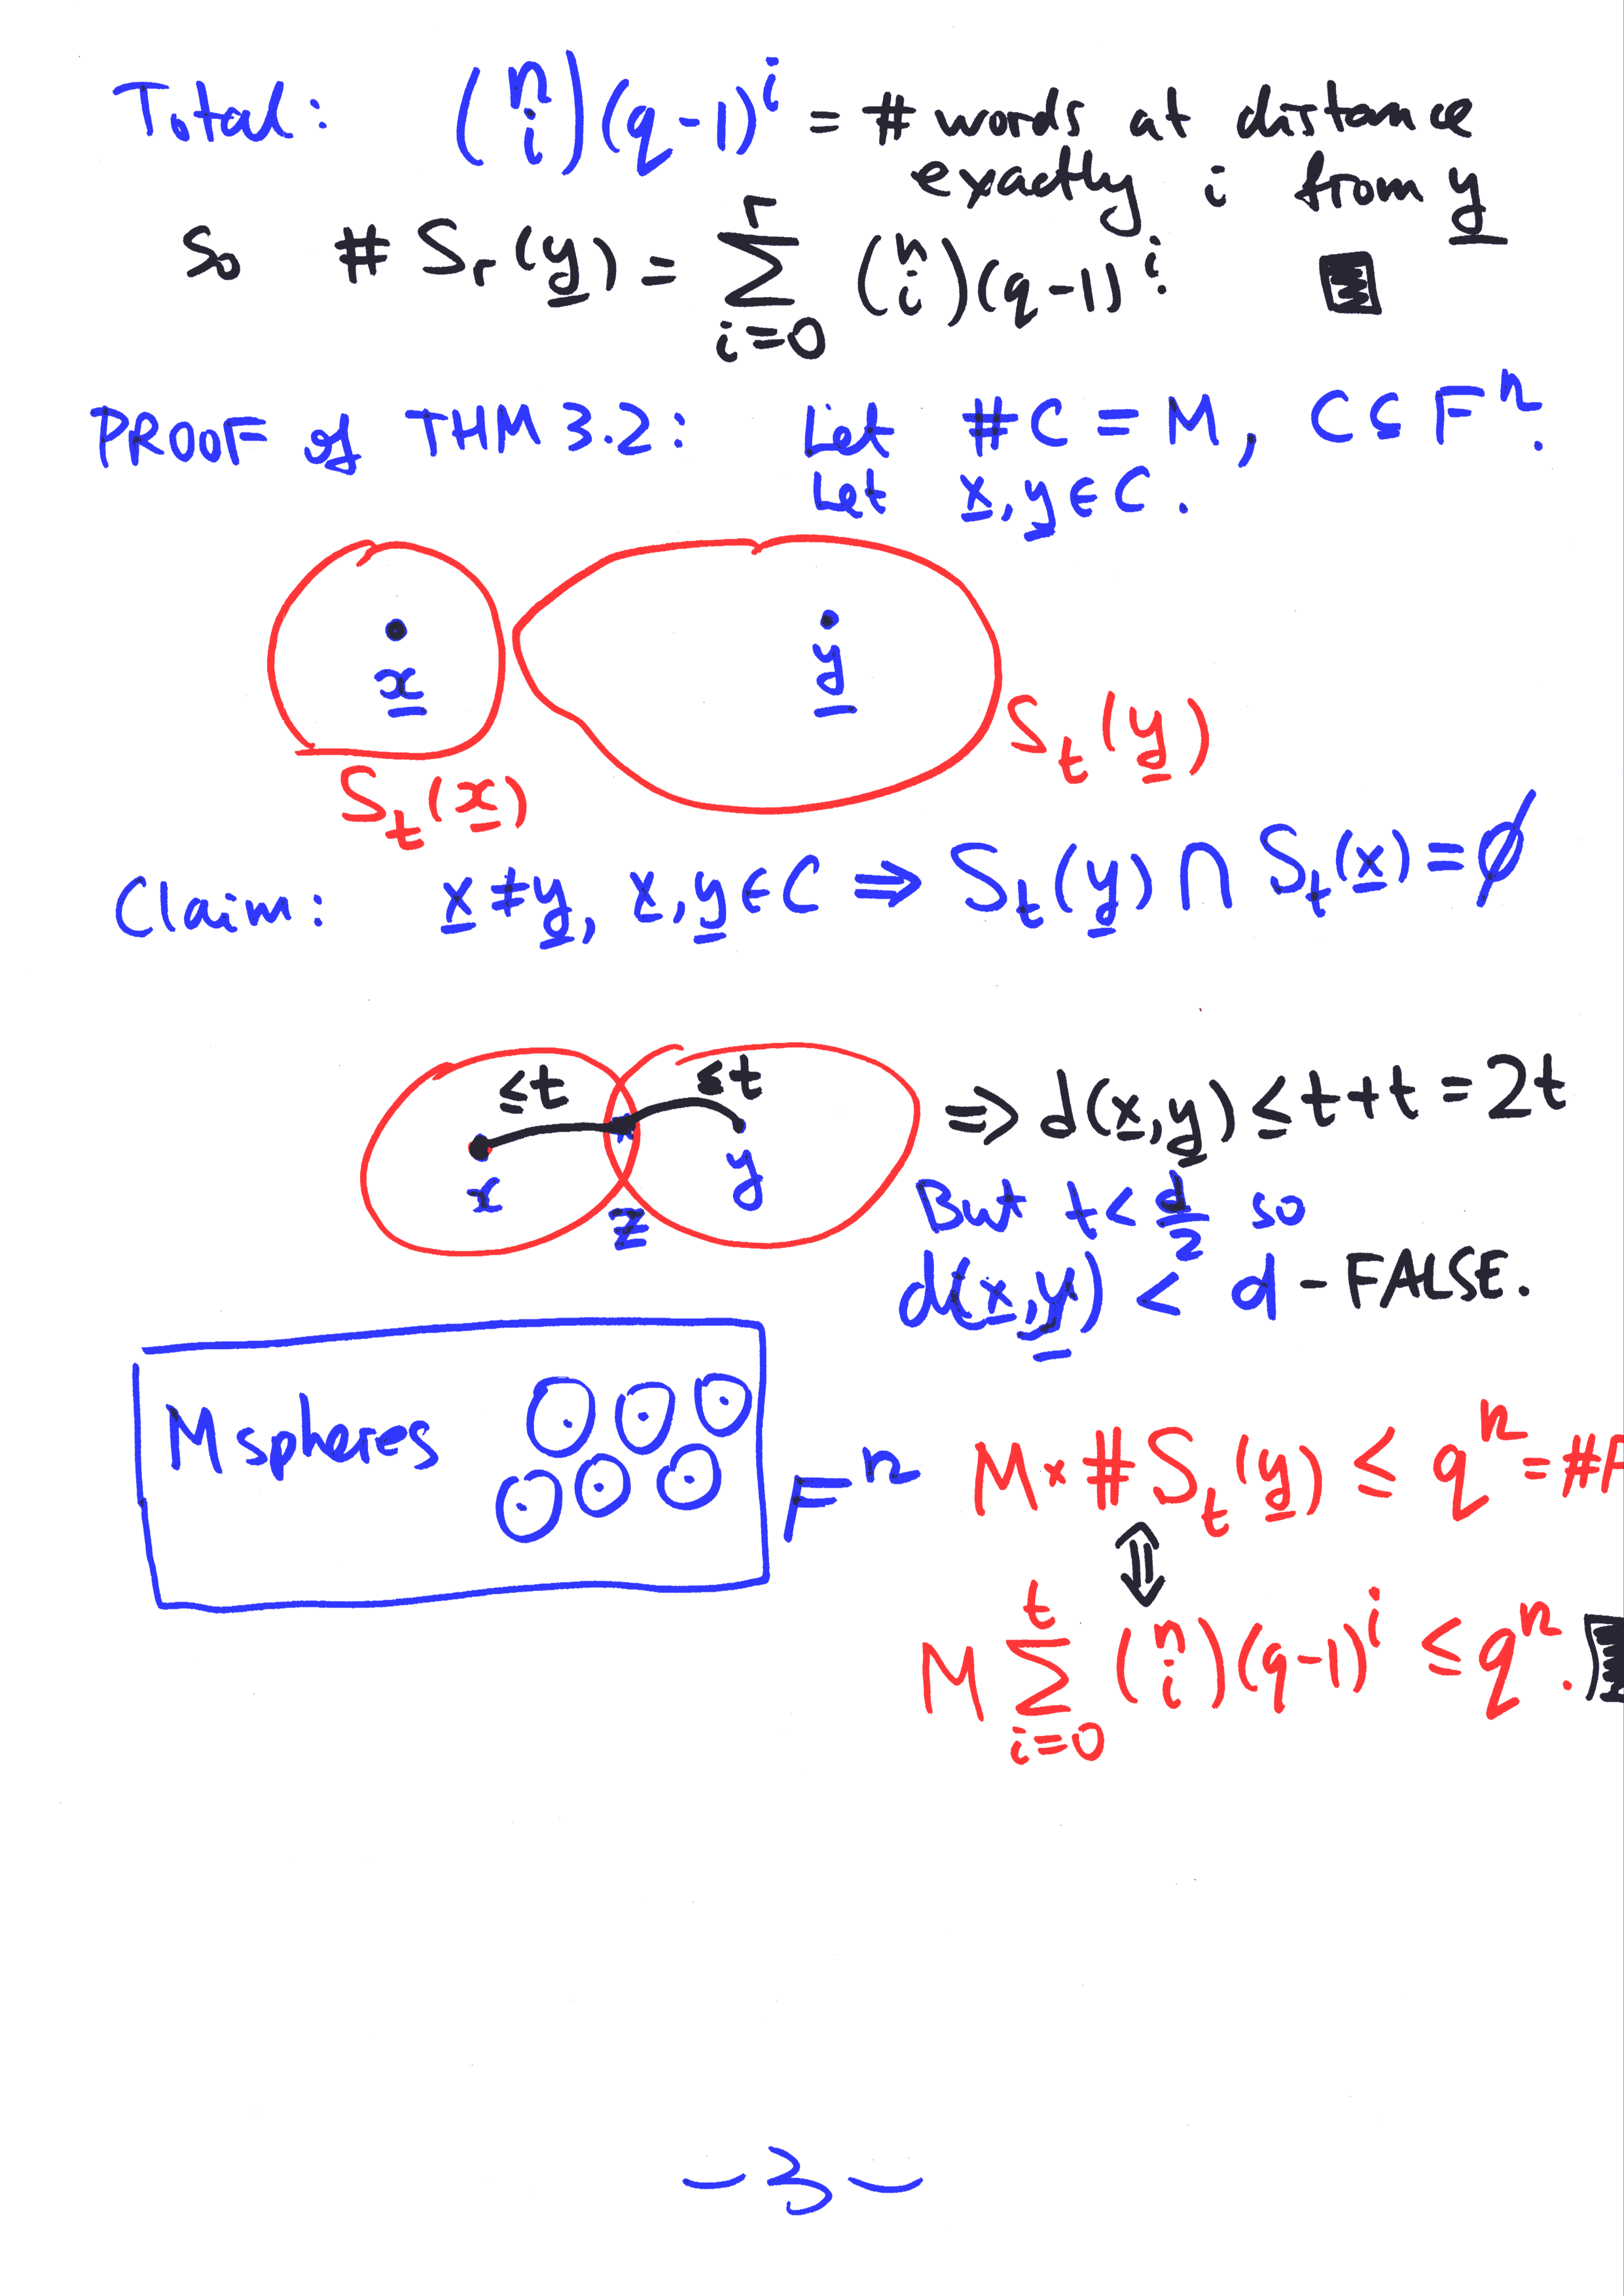 Total: (n i)(q-1)^i = # words at distance
exactly i from y
So # S_r(y) = Σ_{i=0}^{r} (n i)(q-1)^i.
PROOF of THM 3.2: Let #C = M, C ⊆ F^n.
Let x, y ∈ C.
x
y
S_t(y)
S_t(x)
Claim: x ≠ y, x, y ∈ C ⇒ S_t(y) ∩ S_t(x) = ∅
≤t ≤t ⇒ d(x,y) ≤ t+t = 2t
x y
z
But t < d/2 so
d(x,y) < d - FALSE.
M spheres
F^n
M × # S_t(y) ≤ q^n = #F
⇕
M Σ_{i=0}^{t} (n i)(q-1)^i ≤ q^n.
- 3 -